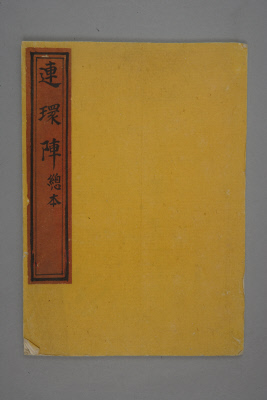 連環陣總本